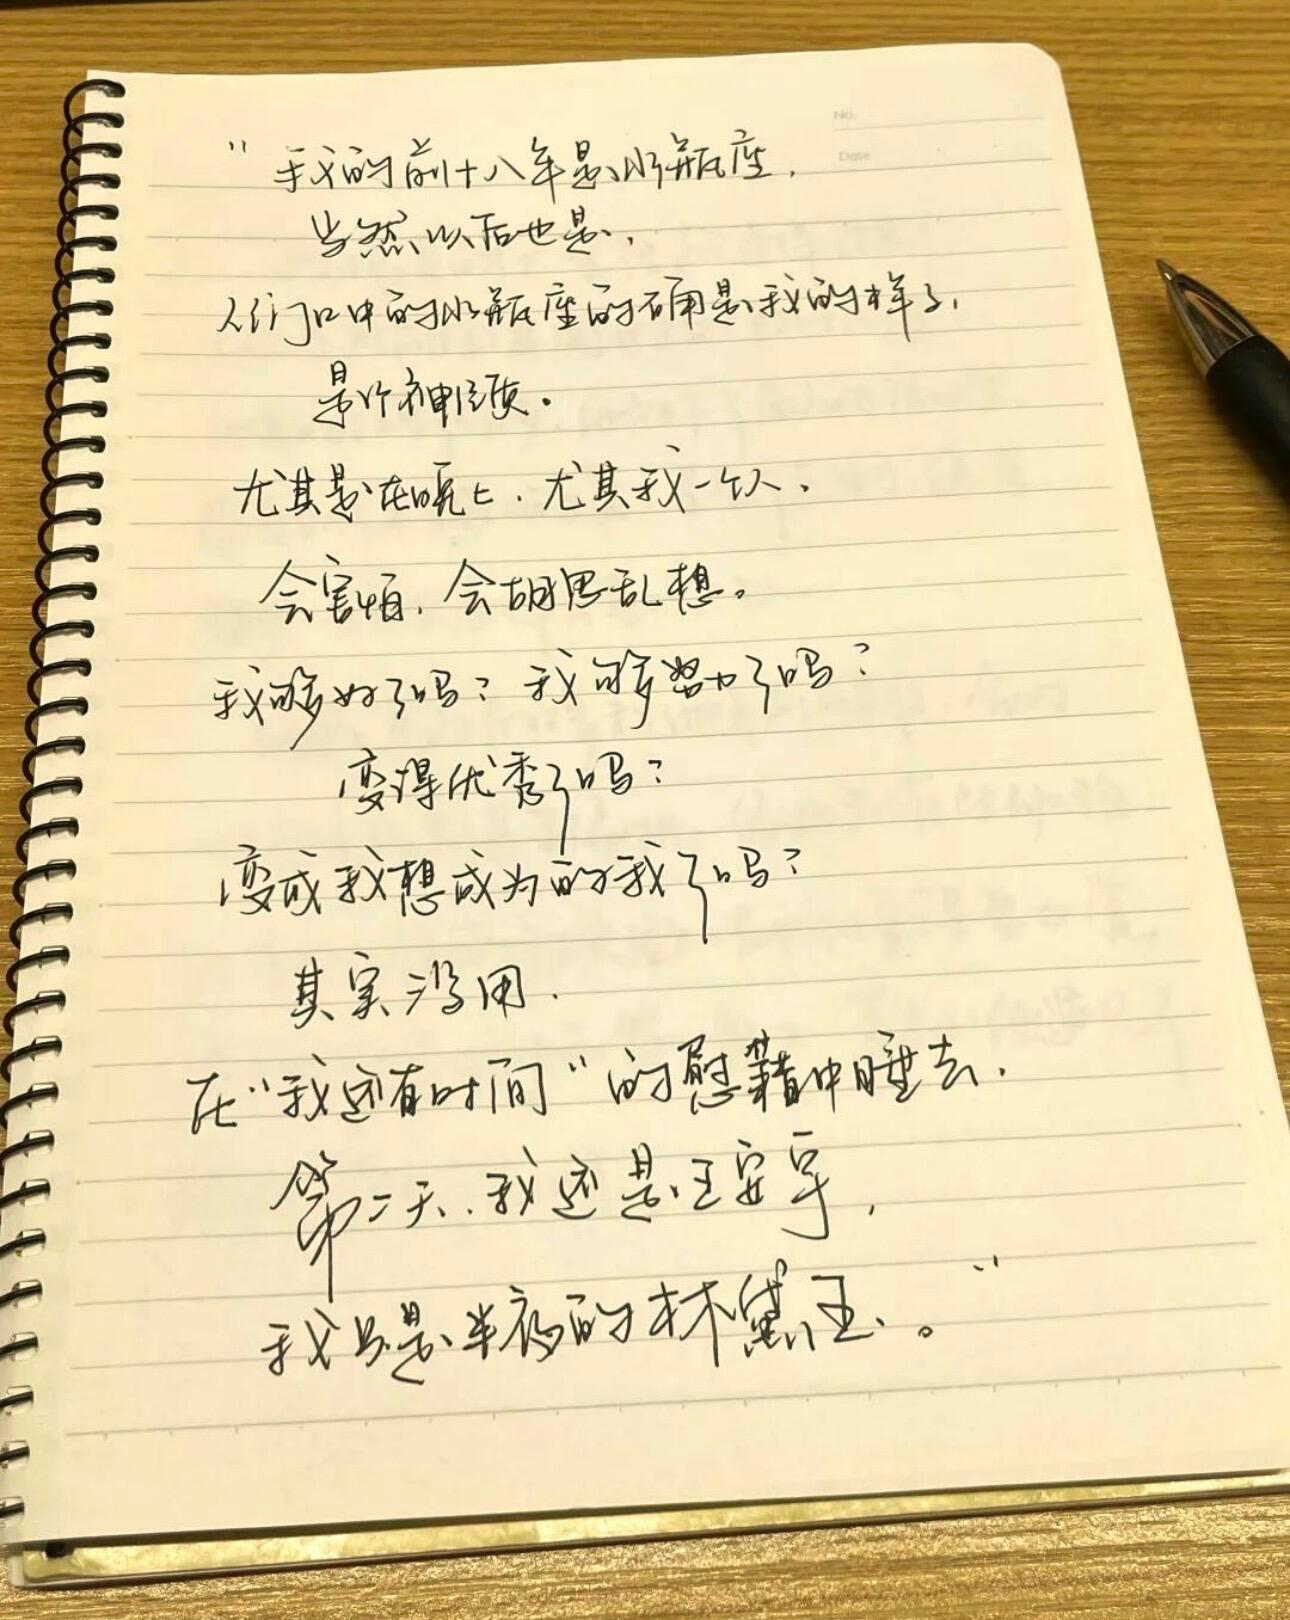 No.
Date
"我的前十八年是水瓶座,
当然以后也是,
人们口中的水瓶座的确是我的样子,
是个神经质。
尤其是在晚上,尤其我一个人,
会害怕,会胡思乱想。
我够好了吗?我够努力了吗?
变得优秀了吗?
变成我想成为的我了吗?
其实没用,
在"我还有时间"的慰藉中睡去,
第二天,我还是王安宇,
我只是半夜的林黛玉。"